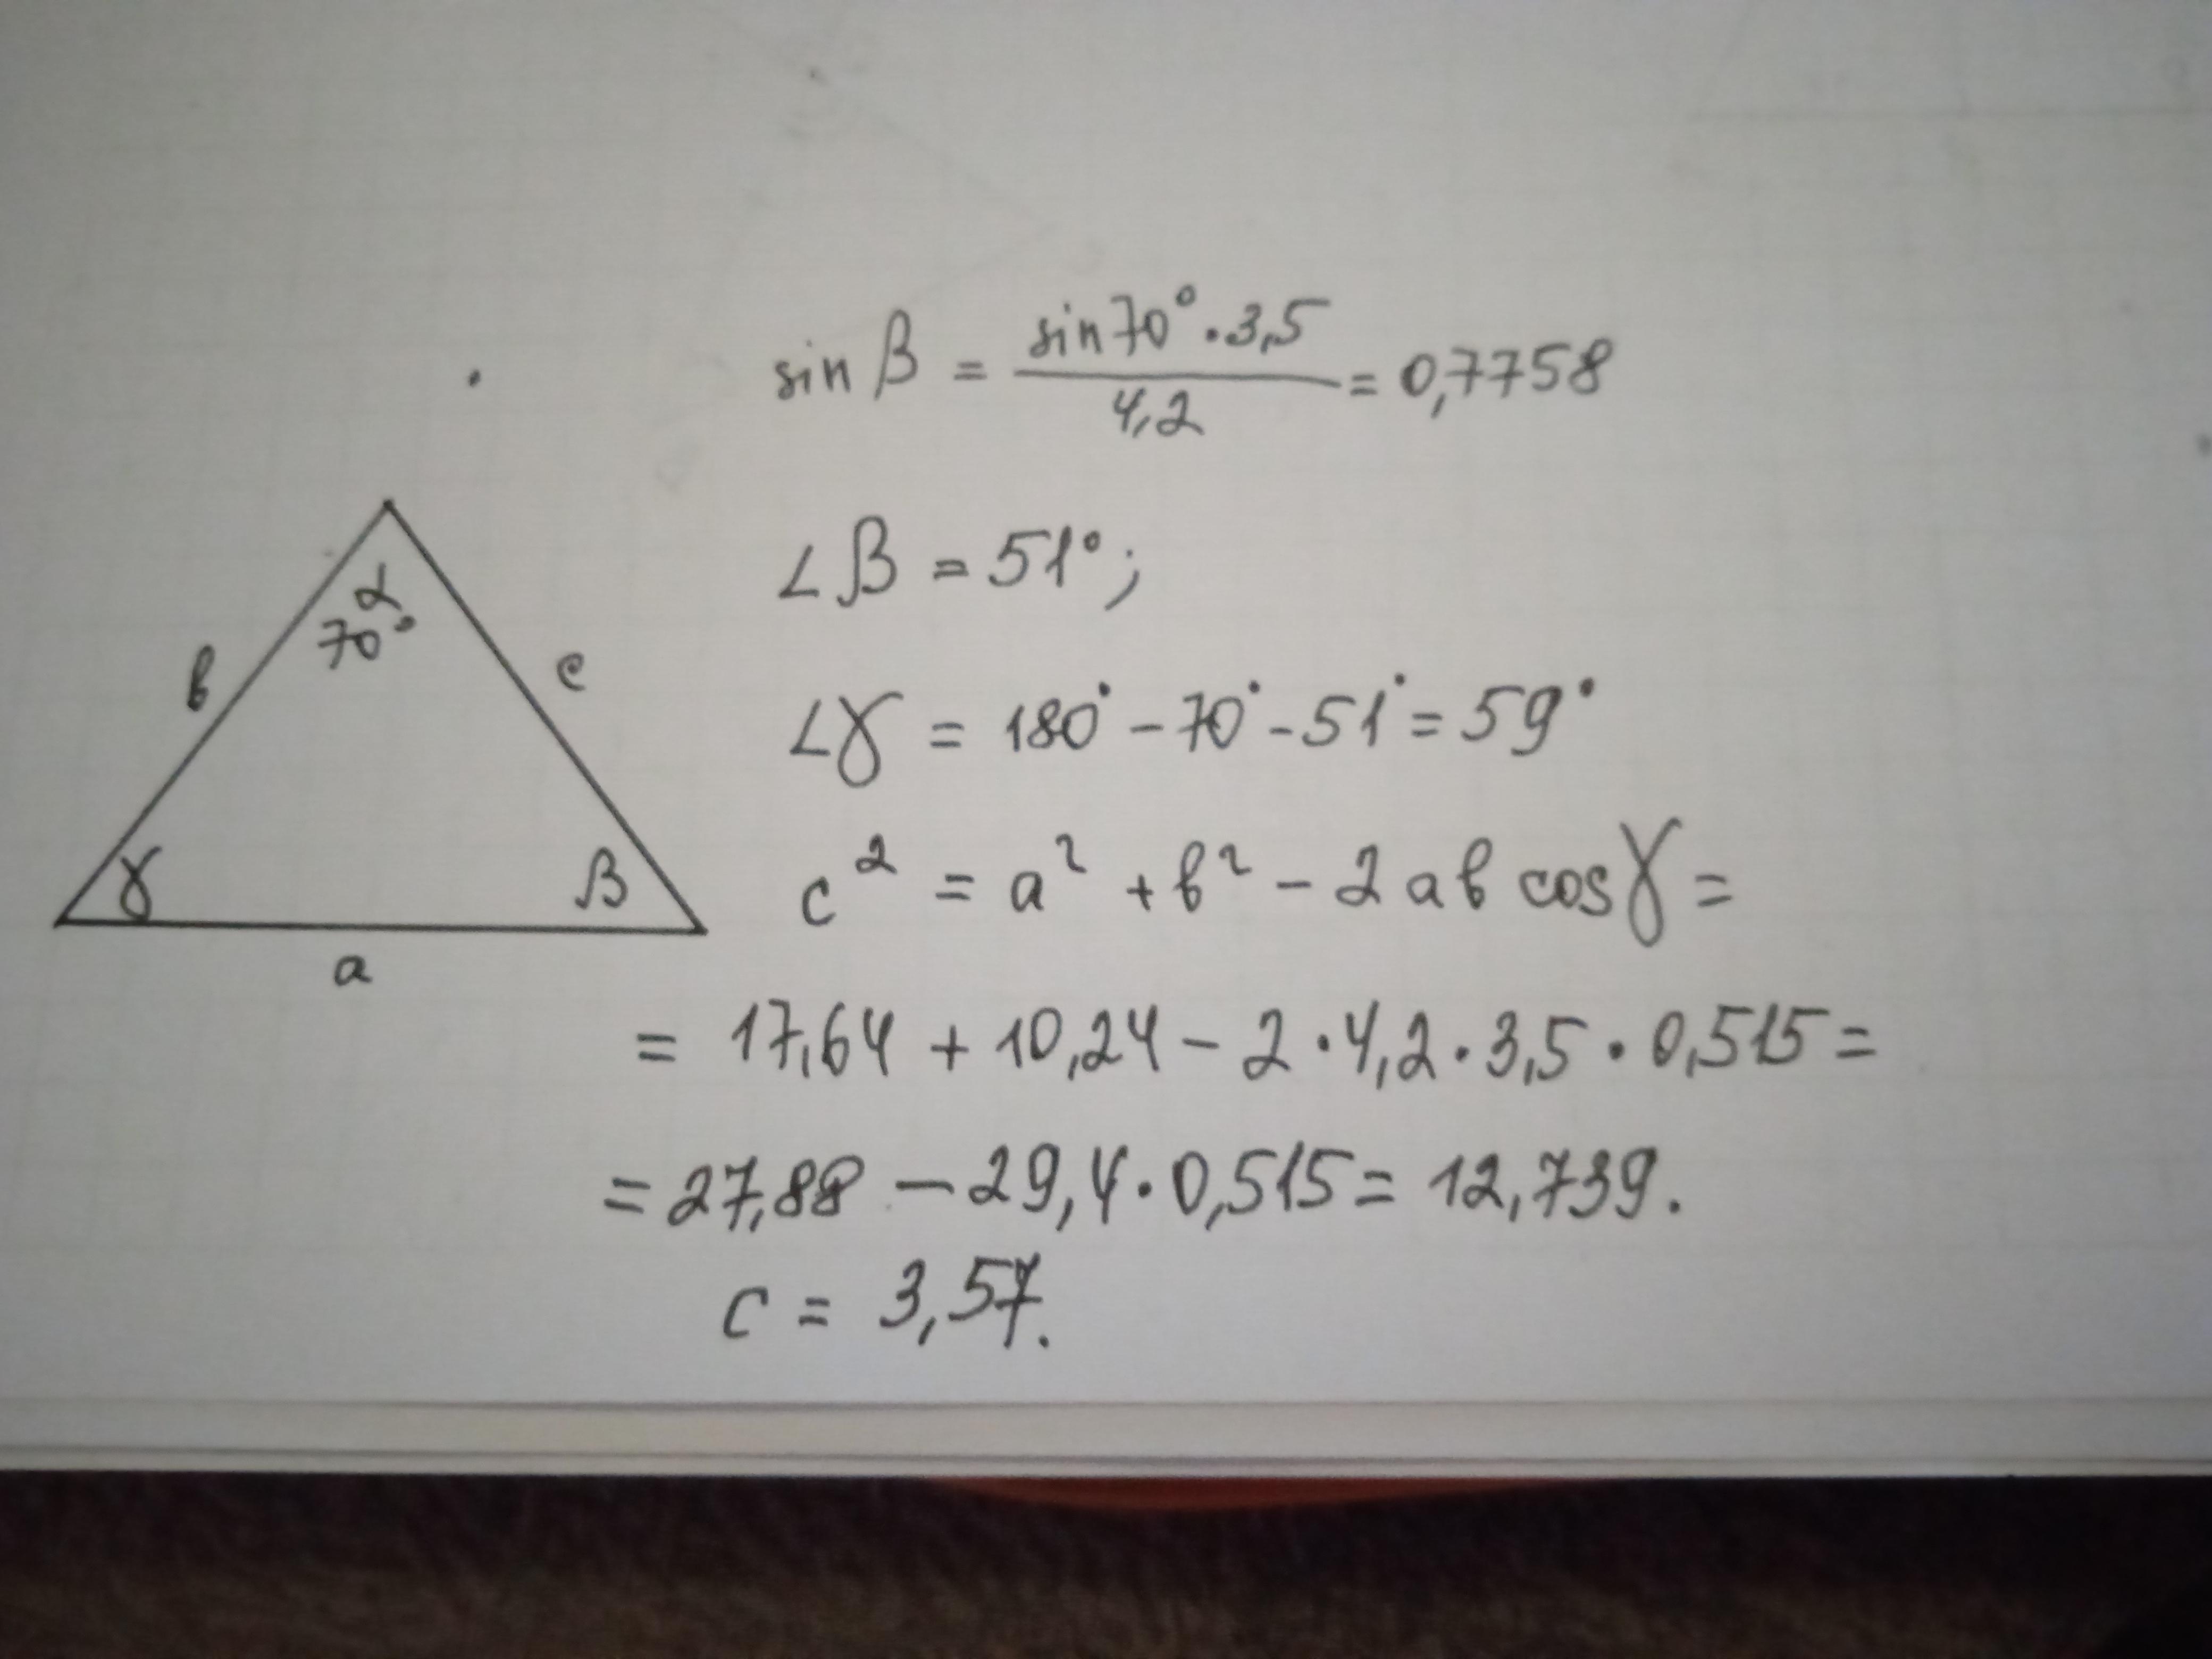 sin β = sin70°·3,5 / 4,2 = 0,7758
∠β = 51°;
∠γ = 180° - 70° - 51° = 59°
c² = a² + в² - 2ав cosγ =
= 17,64 + 10,24 - 2·4,2·3,5·0,515 =
= 27,88 - 29,4·0,515 = 12,739.
c = 3,57.
α
70°
в
c
γ
β
a